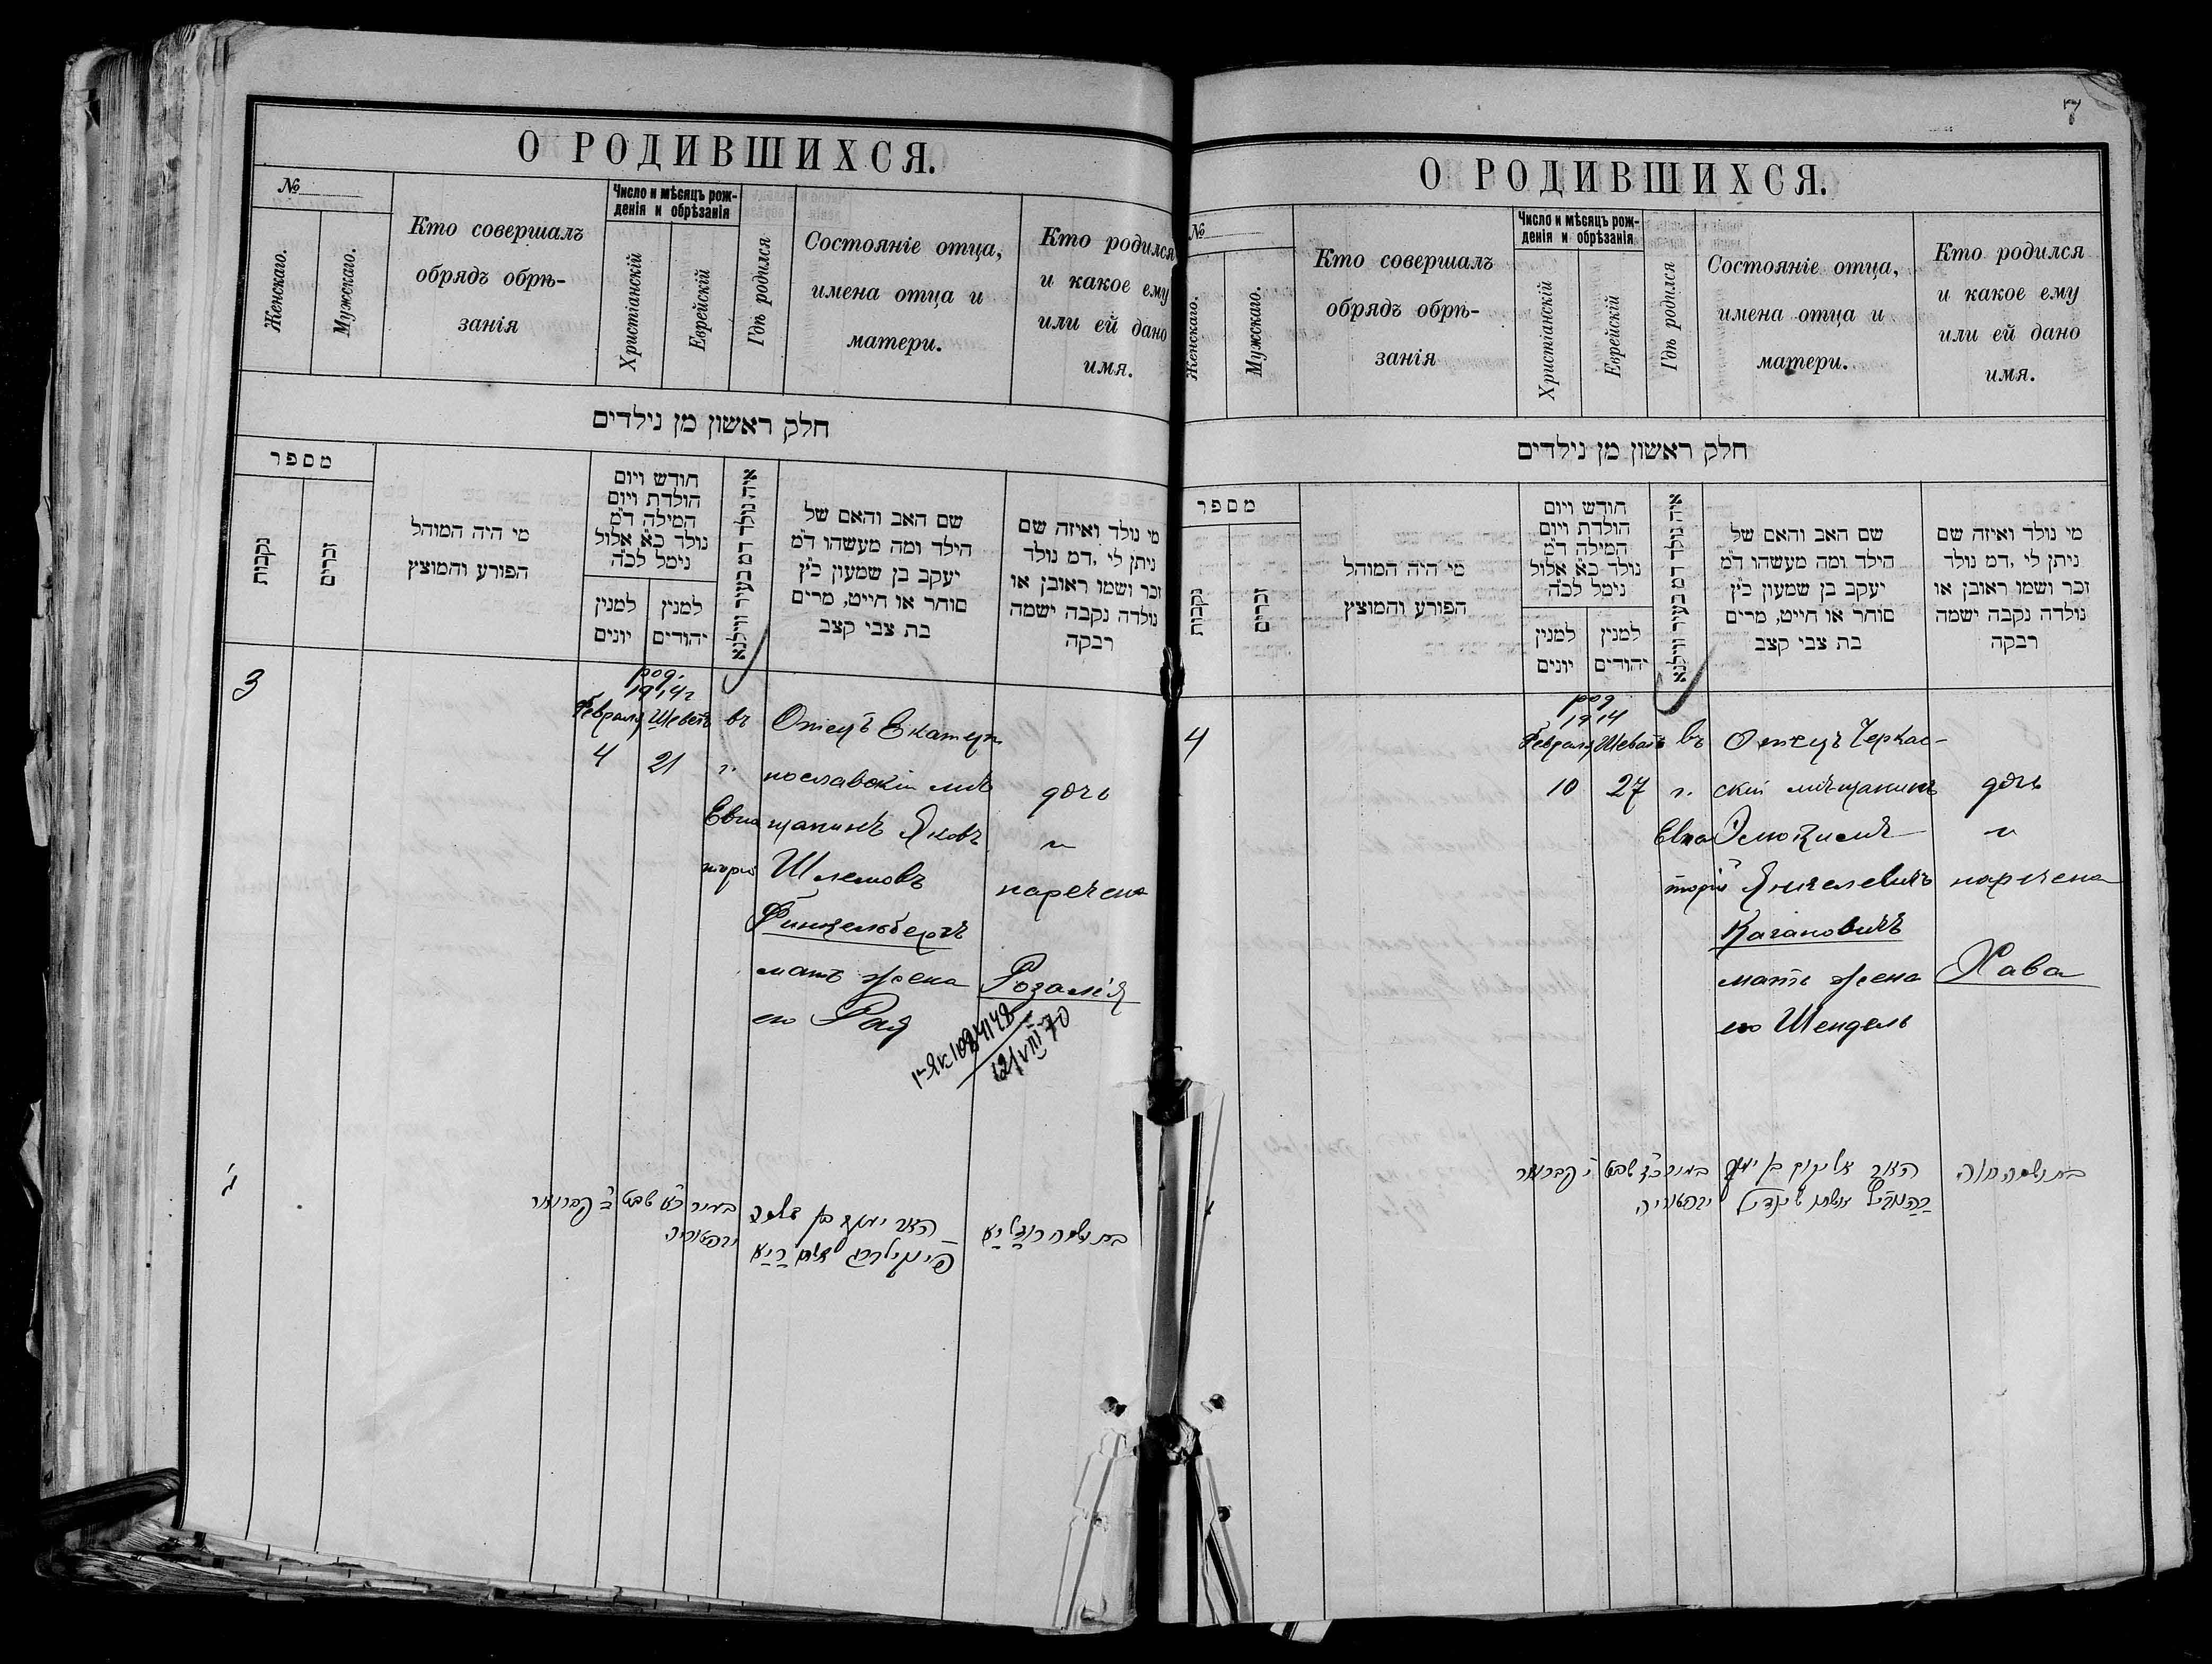 О РОДИВШИХСЯ.
№
Женскаго.
Мужскаго.
Кто совершалъ
обрядъ обрѣ-
занія
Число и мѣсяцъ рож-
денія и обрѣзанія
Христіанскій
Еврейскій
Гдѣ родился
Состояніе отца,
имена отца и
матери.
Кто родился
и какое ему
или ей дано
имя.
חלק ראשון מן נילדים
מספר
נקבות
זכרים
מי היה המוהל
הפורע והמוצץ
חודש ויום
הולדת ויום
המילה ד״מ
נולד כ״א אלול
נימל לכ״ה
למנין
יונים
למנין
יהודים
איה נולד דמ בעיר ווילנא
שם האב והאם של
הילד ומה מעשהו ד״מ
יעקב בן שמעון כ״ץ
סוחר או חייט, מרים
בת צבי קצב
מי נולד ואיזה שם
ניתן לי, דמ נולד
זכר ושמו ראובן או
נולדה נקבה ישמה
רבקה
3
род.
1914 г
Февраля
4
Шеватъ
21
въ
г.
Евпа
торіи
Отецъ Екатери
нославскій мѣ
щанинъ Яковъ
Шлемовъ
Финкельбергъ
мать жена
его Рая
дочь
и
наречена
Розалія
1084148
12/VIII 70
О РОДИВШИХСЯ.
7
№
Женскаго.
Мужскаго.
Кто совершалъ
обрядъ обрѣ-
занія
Число и мѣсяцъ рож-
денія и обрѣзанія
Христіанскій
Еврейскій
Гдѣ родился
Состояніе отца,
имена отца и
матери.
Кто родился
и какое ему
или ей дано
имя.
חלק ראשון מן נילדים
מספר
נקבות
זכרים
מי היה המוהל
הפורע והמוצץ
חודש ויום
הולדת ויום
המילה ד״מ
נולד כ״א אלול
נימל לכ״ה
למנין
יונים
למנין
יהודים
איה נולד דמ בעיר ווילנא
שם האב והאם של
הילד ומה מעשהו ד״מ
יעקב בן שמעון כ״ץ
סוחר או חייט, מרים
בת צבי קצב
מי נולד ואיזה שם
ניתן לי, דמ נולד
זכר ושמו ראובן או
נולדה נקבה ישמה
רבקה
4
род
1914
Февраля
10
Шеватъ
27
въ
г.
Евпа
торіи
Отецъ Черкас-
скій мѣщанинъ
Янкелевичъ
Кагановичъ
мать жена
его Шендель
дочь
и
наречена
Хава